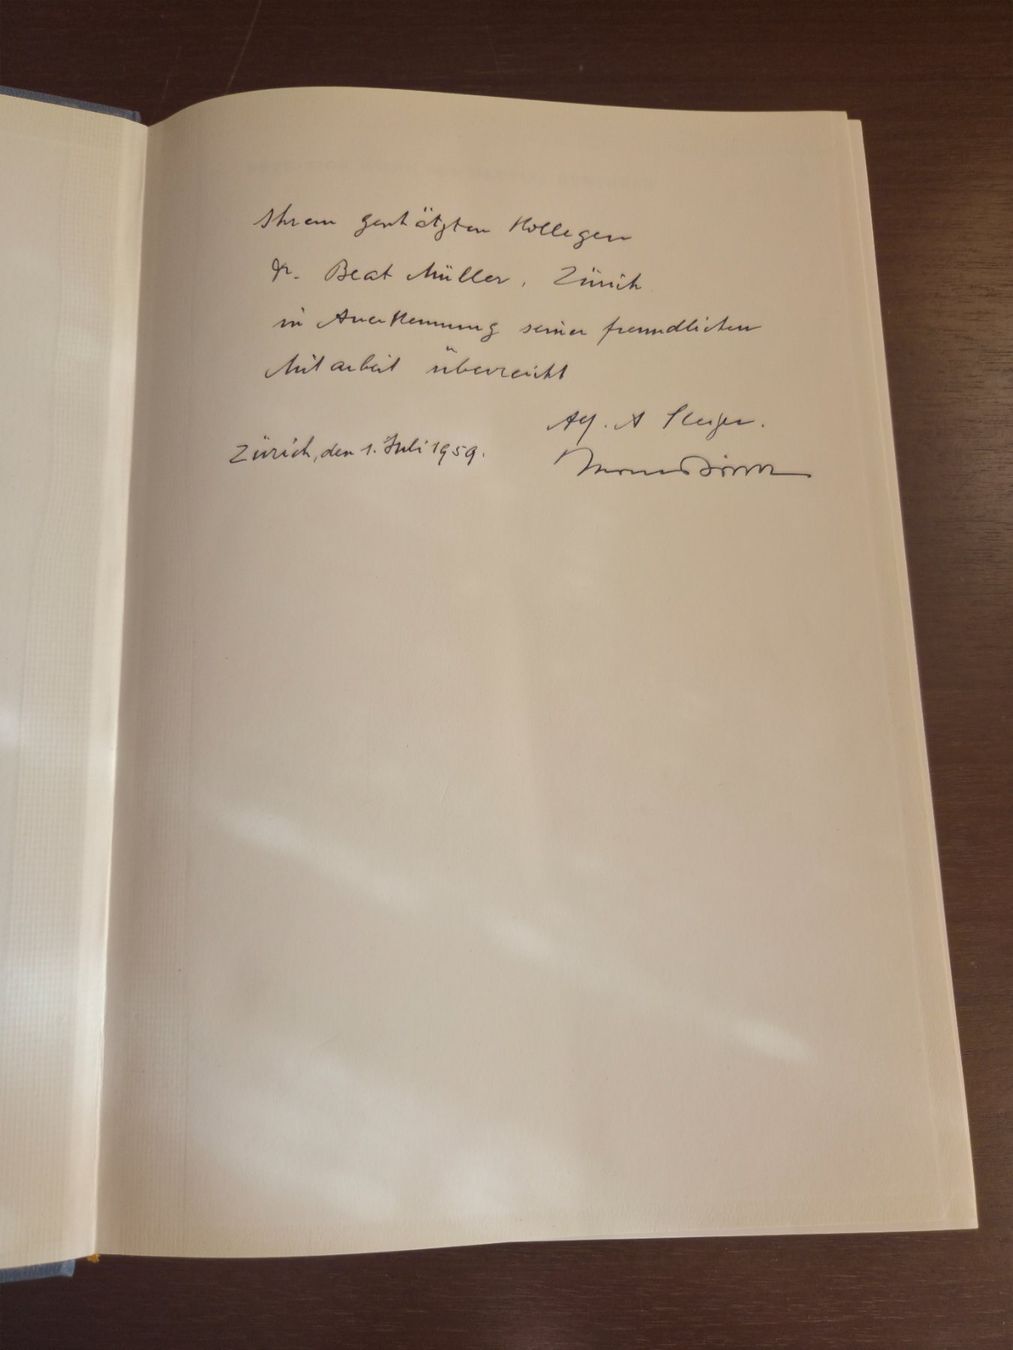 Ihrem geschätzten Kollegen
Dr. Beat Müller, Zürich
in Anerkennung seiner freundlichen
Mitarbeit überreicht
Alf. A
Zürich, den 1. Juli 1959.